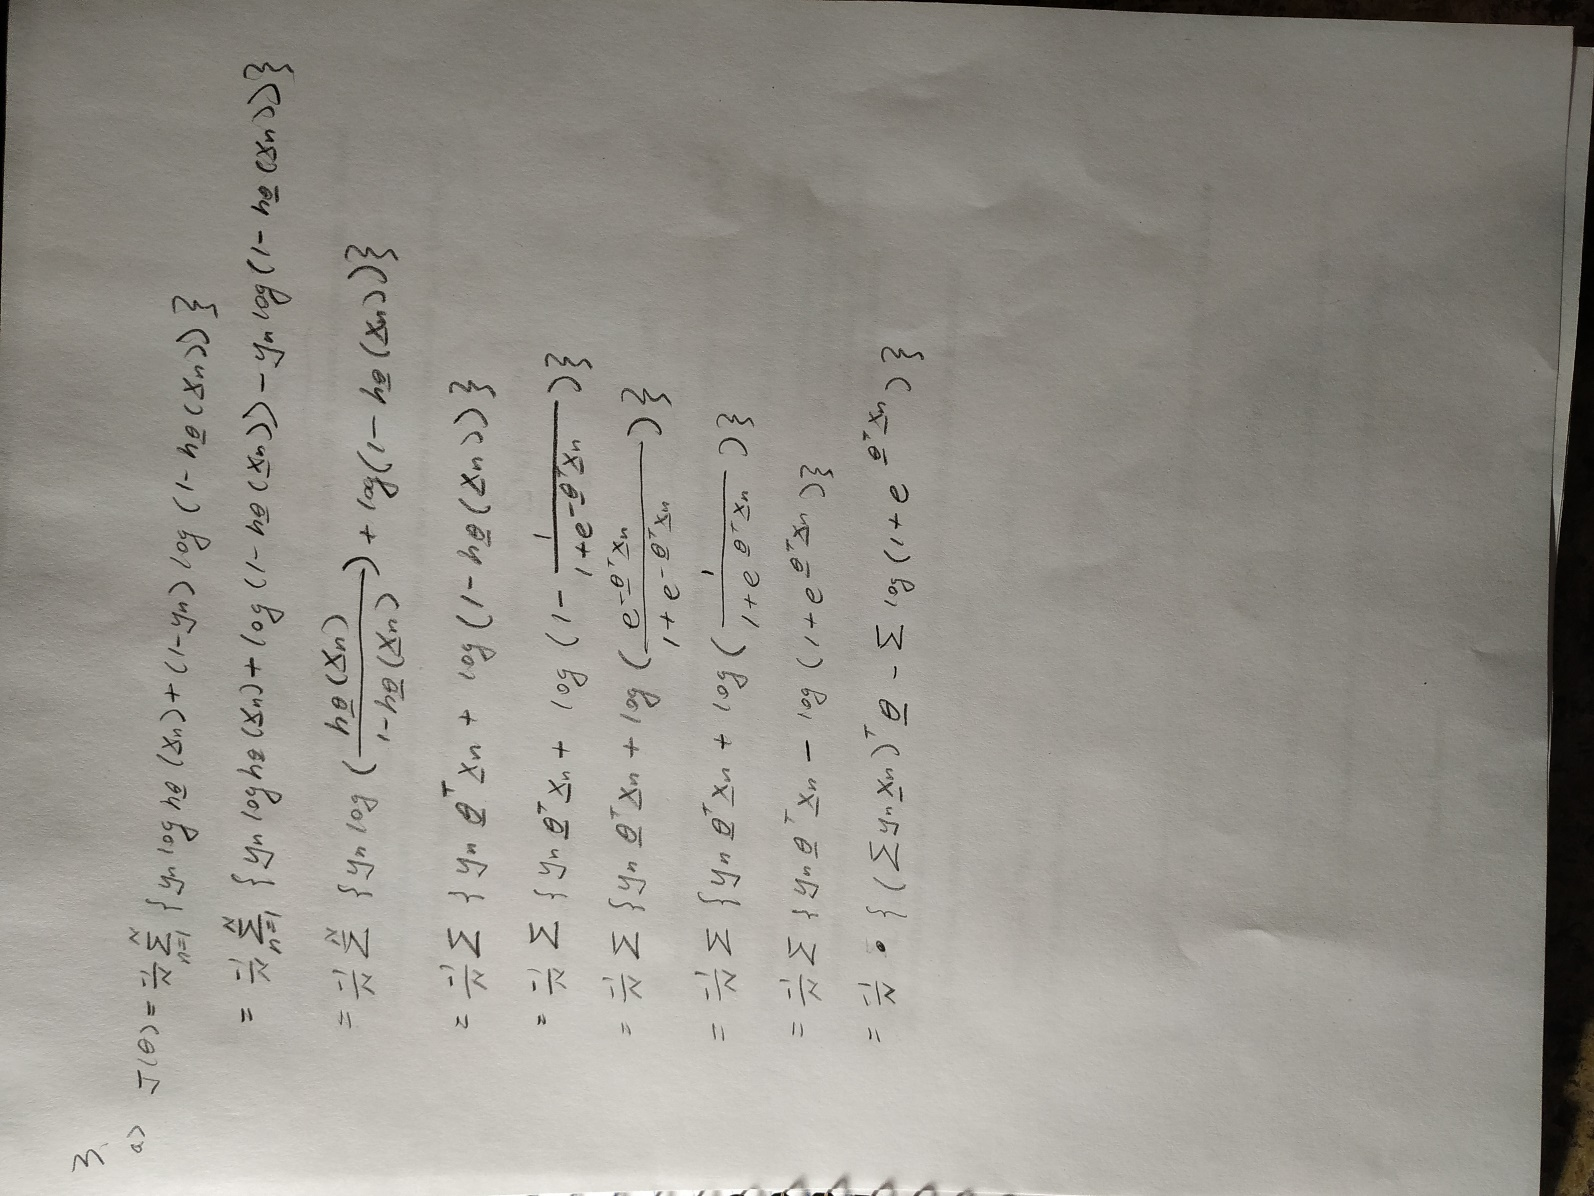 3.
a) J(θ) = -1/N Σ_{n=1}^{N} {y_n log h_θ(x_n) + (1-y_n) log (1-h_θ(x_n))}
= -1/N Σ_{n=1}^{N} {y_n log h_θ(x_n) + log (1-h_θ(x_n)) - y_n log (1-h_θ(x_n))}
= -1/N Σ^{N} {y_n log (h_θ(x_n) / 1-h_θ(x_n)) + log (1-h_θ(x_n))}
= -1/N Σ {y_n θ^T x_n + log (1-h_θ(x_n))}
= -1/N Σ {y_n θ^T x_n + log (1 - 1 / 1+e^{-θ^T x_n})}
= -1/N Σ {y_n θ^T x_n + log (e^{-θ^T x_n} / 1+e^{-θ^T x_n})}
= -1/N Σ {y_n θ^T x_n + log (1 / 1+e^{θ^T x_n})}
= -1/N Σ {y_n θ^T x_n - log (1+e^{θ^T x_n})}
= -1/N • {(Σ y_n x_n)^T θ - Σ log (1+e^{θ^T x_n})}